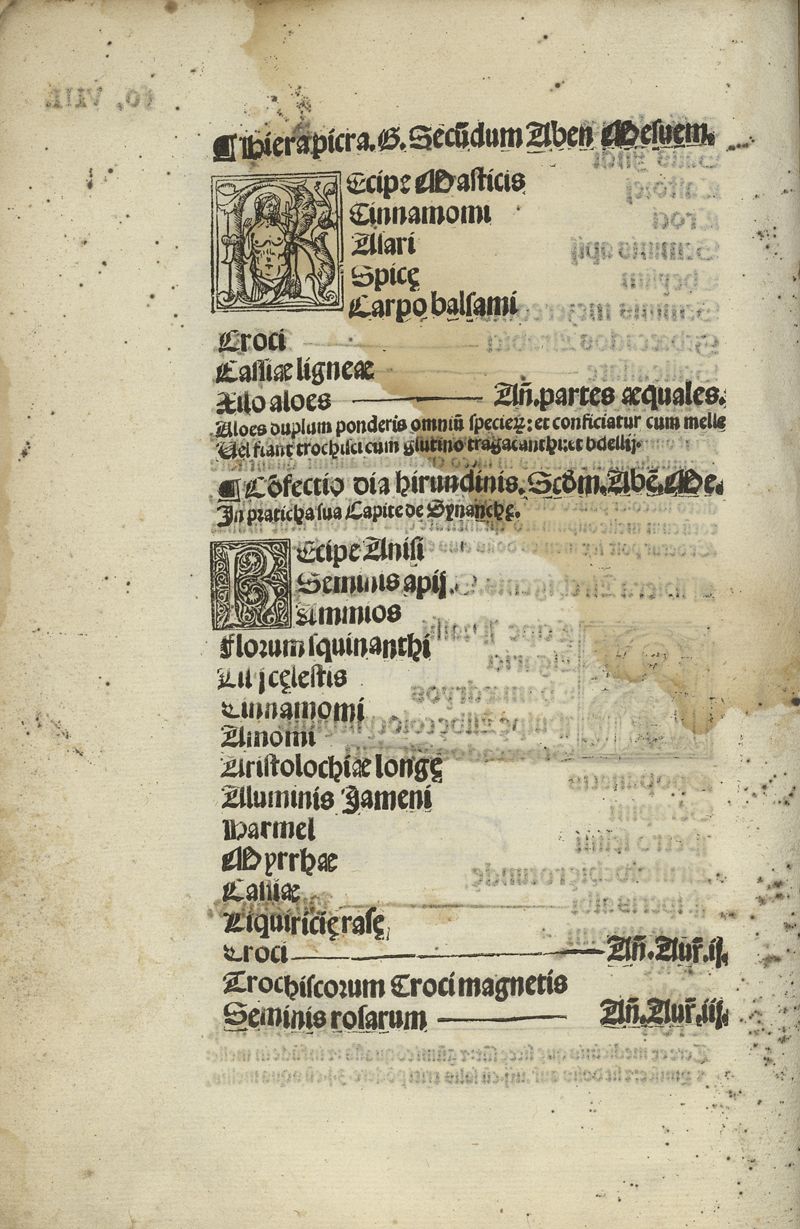 ¶ Hiera picra. G. Secūdum Aben Mesuem.
REcipe Masticis
Cinnamomi
Asari
Spicę
Carpo balsami
Croci
Cassiæ ligneæ
Xilo aloes Añ. partes æquales.
Aloes duplum ponderis omniū specieꝝ: et conficiatur cum melle
Vel fiant trochisci cum glutino tragacanthi: et bdellij.
¶ Cōfectio dia hirundinis. Scďm. Abē. Me.
In praticha sua Capite de Synanchę.
REcipe Anisi
Seminis apij.
Ammios
Florum squinanthi
Lilij cęlestis
Cinnamomi
Amomi
Aristolochiæ longę
Aluminis Jameni
Harmel
Myrrhæ
Cassiæ
Liquiricię rasę
Croci Añ. Aur̄. ij.
Trochiscorum Croci magnetis
Seminis rosarum Añ. Aur̄. iij.